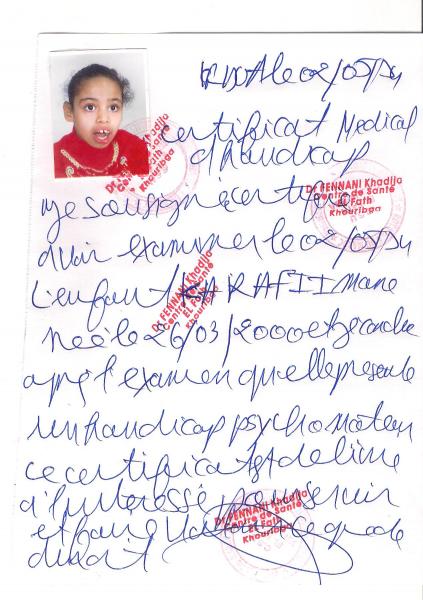 le 02/05/
Certificat Medical
d'handicap
Dr FENNANI Khadija
Centre de Santé
El Fath
Khouribga
Je soussigné certifie
Dr FENNANI Khadija
Centre de Santé
El Fath
Khouribga
avoir examiner le 02/05/
L'enfant KHARAFI Imane
Dr FENNANI Khadija
Centre de Santé
El Fath
Khouribga
Née le 26/03/2000 et je conclue
après l'examen qu'elle présente
un handicap psychomoteur
ce certificat est delivré
à l'interessé pour servir
et faire valoir ce que de
droit
Dr FENNANI Khadija
Centre de Santé
El Fath
Khouribga